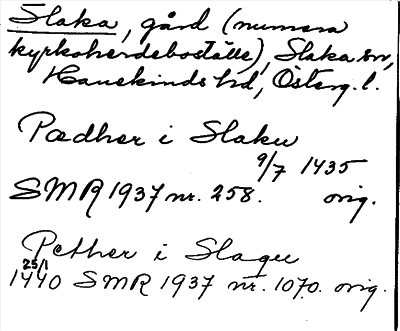 Slaka, gård (numera
kyrkoherdeboställe), Slaka sn,
Hanekinds hd, Österg. l.
Pædher i Slaku
9/7 1435
SMR 1937 nr. 258. orig.
Pether i Slagu
25/1
1440 SMR 1937 nr. 1070. orig.